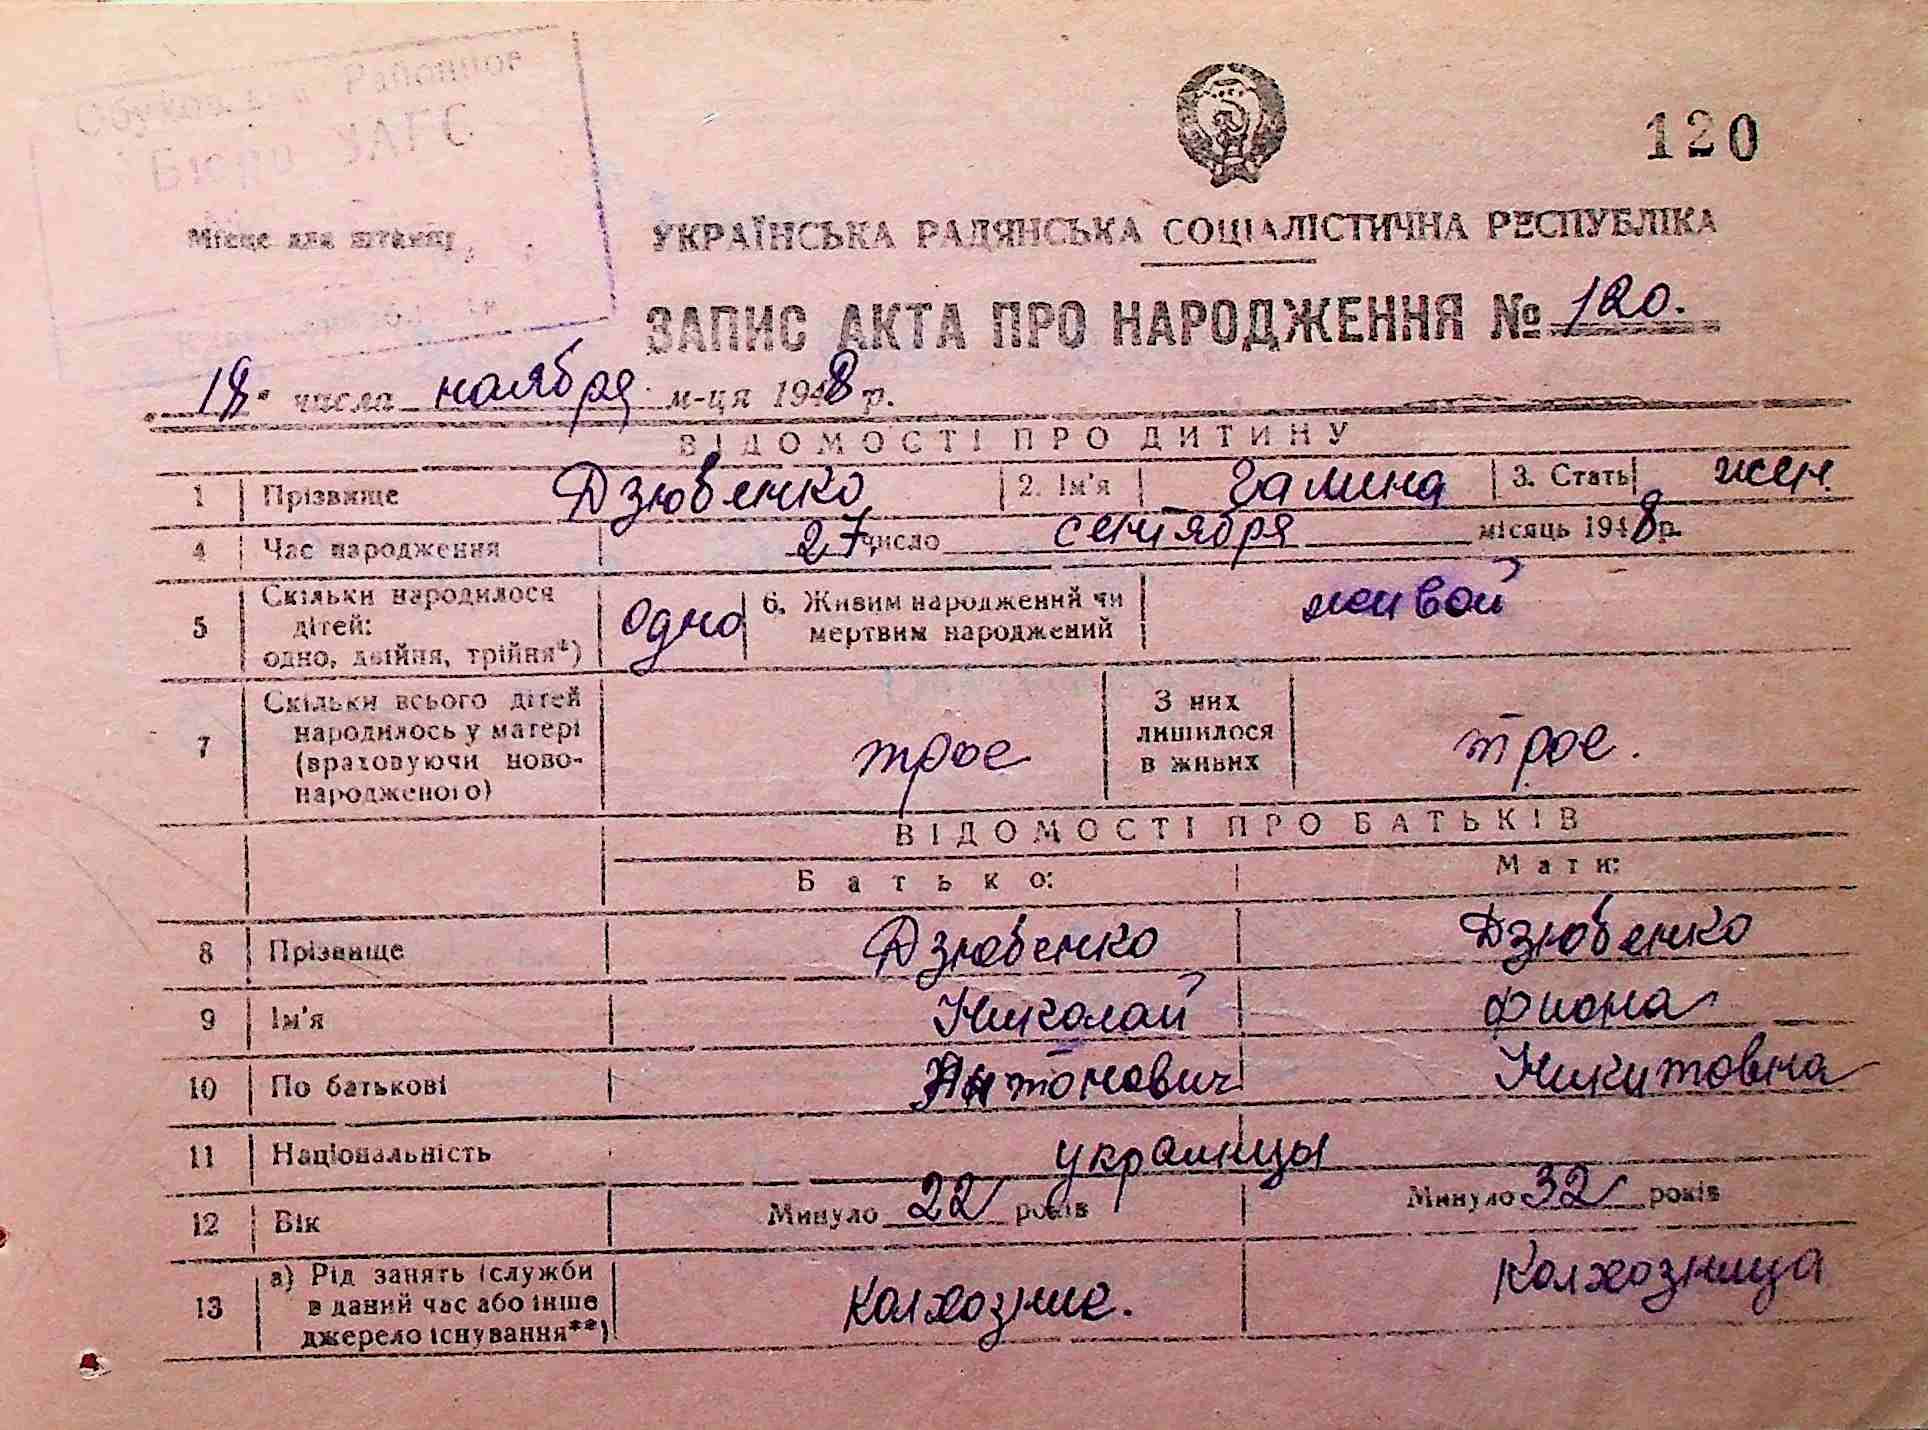 Районное
Бюро ЗАГС
120
Місце для штампу
УКРАЇНСЬКА РАДЯНСЬКА СОЦІАЛІСТИЧНА РЕСПУБЛІКА
ЗАПИС АКТА ПРО НАРОДЖЕННЯ № 120.
18 числа ноября м-ця 1948 р.
ВІДОМОСТІ ПРО ДИТИНУ
1 Прізвище Дзюбенко 2. Ім'я Галина 3. Стать жен.
4 Час народження 27 число сентября місяць 1948 р.
5 Скільки народилося дітей: одно, двійня, трійня*) одно 6. Живим народжений чи мертвим народжений живой
7 Скільки всього дітей народилось у матері (враховуючи ново-народженого) трое З них лишилося в живих трое.
ВІДОМОСТІ ПРО БАТЬКІВ
Батько: Мати:
8 Прізвище Дзюбенко Дзюбенко
9 Ім'я Николай Фиона
10 По батькові Антонович Никитовна
11 Національність украинцы
12 Вік Минуло 22 років Минуло 32 років
13 а) Рід занять (служби в даний час або інше джерело існування**) Колхозник. Колхозница